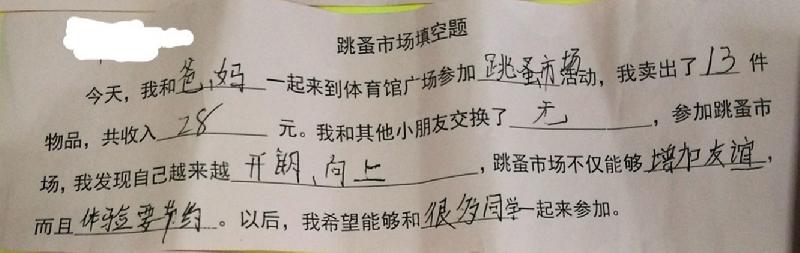 跳蚤市场填空题
今天，我和爸、妈一起来到体育馆广场参加跳蚤市场活动，我卖出了13件
物品，共收入28元。我和其他小朋友交换了无，参加跳蚤市
场，我发现自己越来越开朗、向上，跳蚤市场不仅能够增加友谊，
而且体验要节约。以后，我希望能够和很多同学一起来参加。